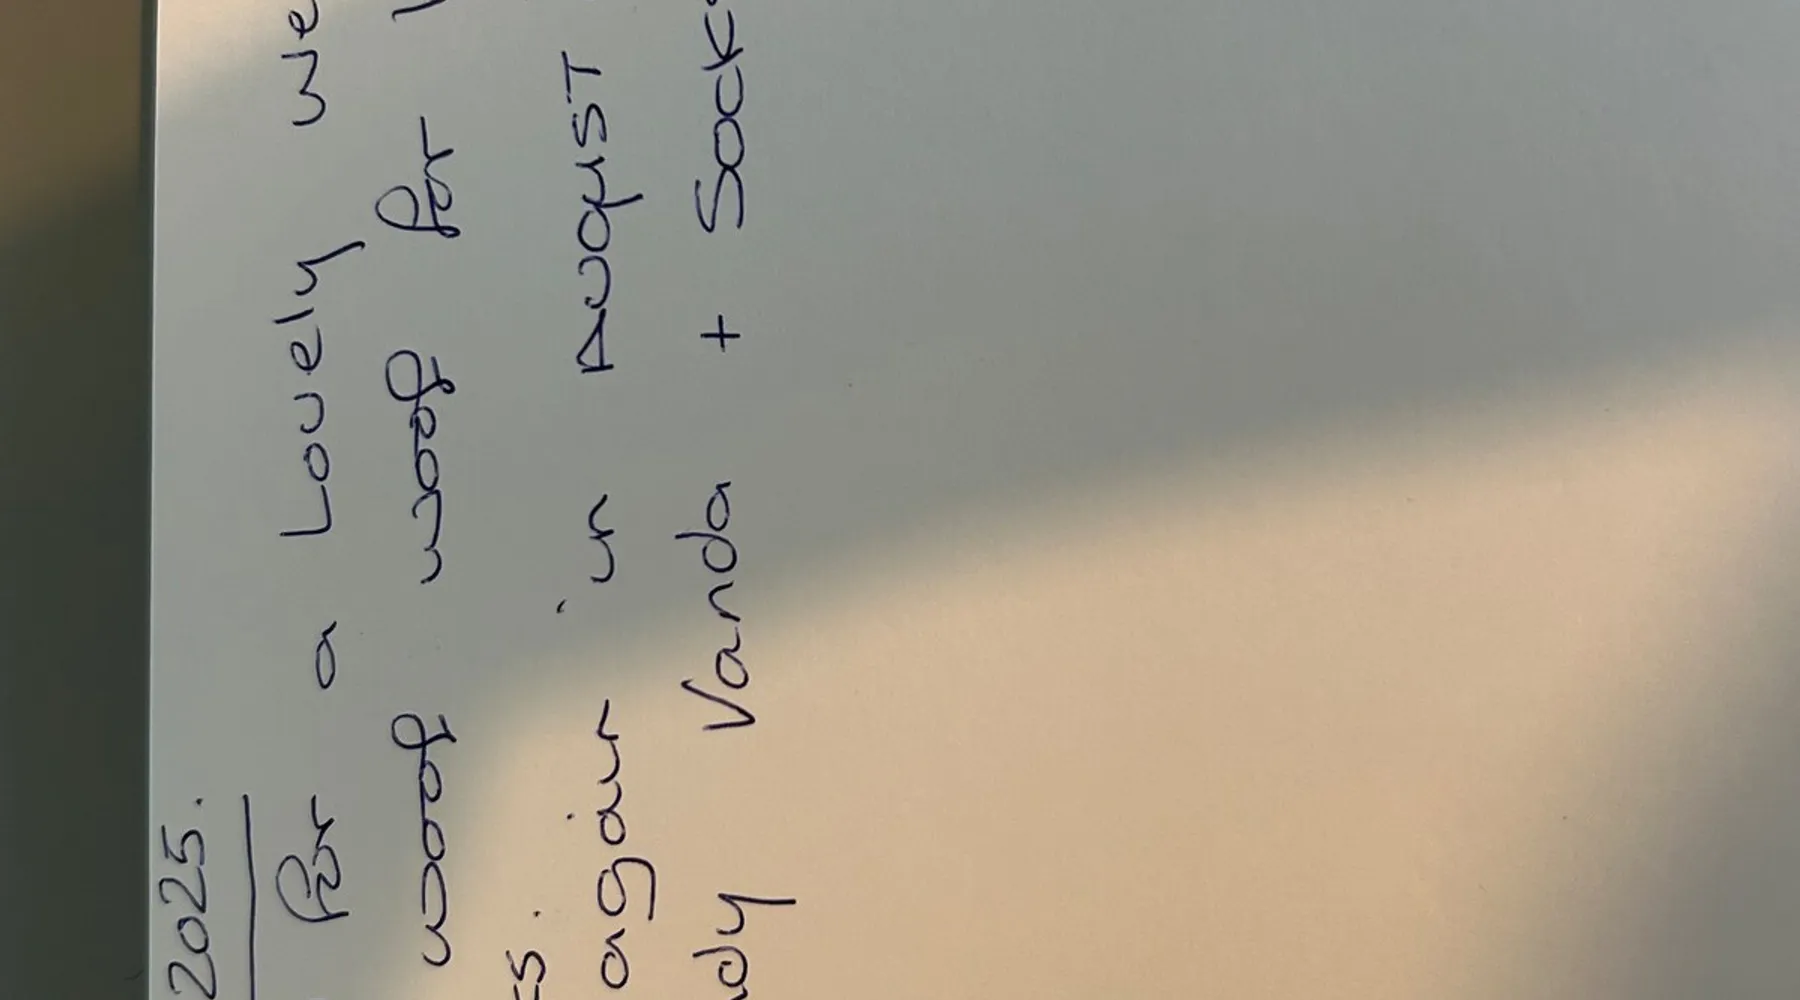 2025.
for a Lovely we
woof woof for
s.
again in August
dy Vanda + Sock